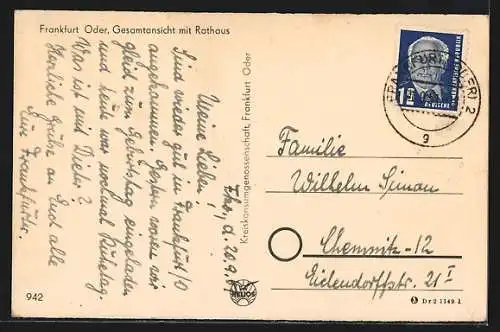 Frankfurt Oder, Gesamtansicht mit Rathaus
Ffo, d. 20.9.
Meine Lieben!
Sind wieder gut in Frankfurt/O
angekommen. Gestern waren wir
gleich zum Geburtstag eingeladen
und heute war nochmal Ruhetag.
Was ist mit Dieter?
Herzliche Grüße an Euch alle
Eure Frankfurter.
942
Kreiskonsumgenossenschaft, Frankfurt Oder
HELIOS
FRANKFURT (ODER) 2
g
DEUTSCHE
DEMOKRATISCHE REPUBLIK
Familie
Wilhelm Simon
Chemnitz-12
Eichendorffstr. 21 I
Dr 2 1149 J